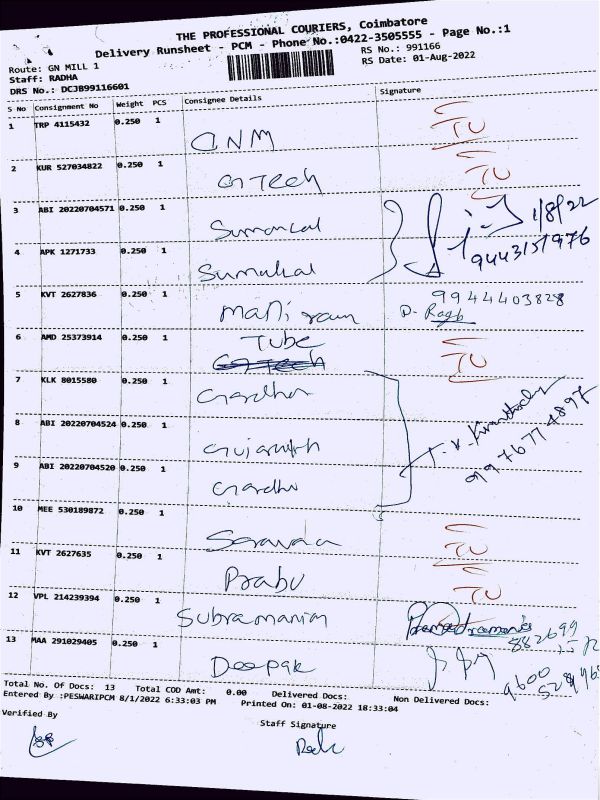 THE PROFESSIONAL COURIERS, Coimbatore
Delivery Runsheet - PCM - Phone No.:0422-3505555 - Page No.:1
Route: GN MILL 1
RS No.: 991166
Staff: RADHA
RS Date: 01-Aug-2022
DRS No.: DCJB99116601
S No Consignment No Weight PCS Consignee Details Signature
1 TRP 4115432 0.250 1 GNM TU
2 KUR 527034822 0.250 1 G Tech TU
3 ABI 20220704571 0.250 1 1/8/22
4 APK 1271733 0.250 1 9443151976
5 KVT 2627836 0.250 1 Mani ram 9944403828
6 AMD 25373914 0.250 1 Tube TU
7 KLK 8015580 0.250 1
8 ABI 20220704524 0.250 1 9976774897
9 ABI 20220704520 0.250 1
10 MEE 530189872 0.250 1 Saravana TU
11 KVT 2627635 0.250 1 Prabu TU
12 VPL 214239394 0.250 1 Subramaniam
13 MAA 291029405 0.250 1 Deepak
Total No. Of Docs: 13 Total COD Amt: 0.00 Delivered Docs: Non Delivered Docs:
Entered By :PESWARIPCM 8/1/2022 6:33:03 PM Printed On: 01-08-2022 18:33:04
Verified By
Staff Signature